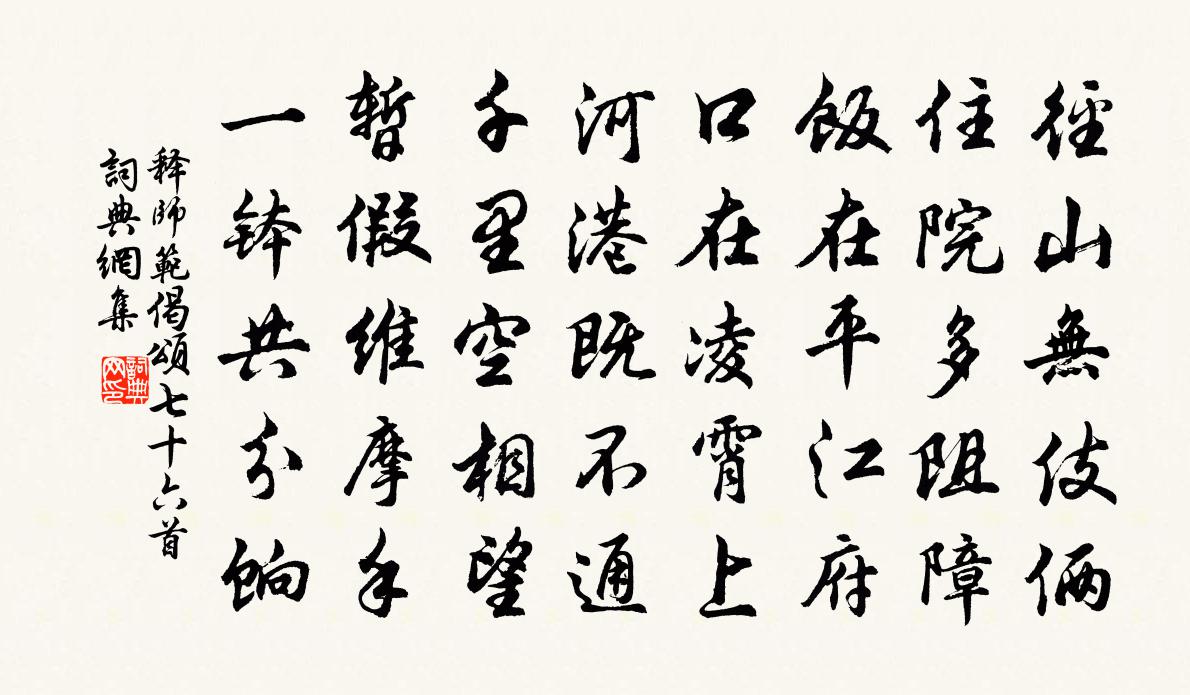 徑山無伎倆
住院多阻障
飯在平江府
口在凌霄上
河港既不通
千里空相望
暫假維摩手
一鉢共分餉
释師範偈頌七十六首
詞典網集
詞典网印